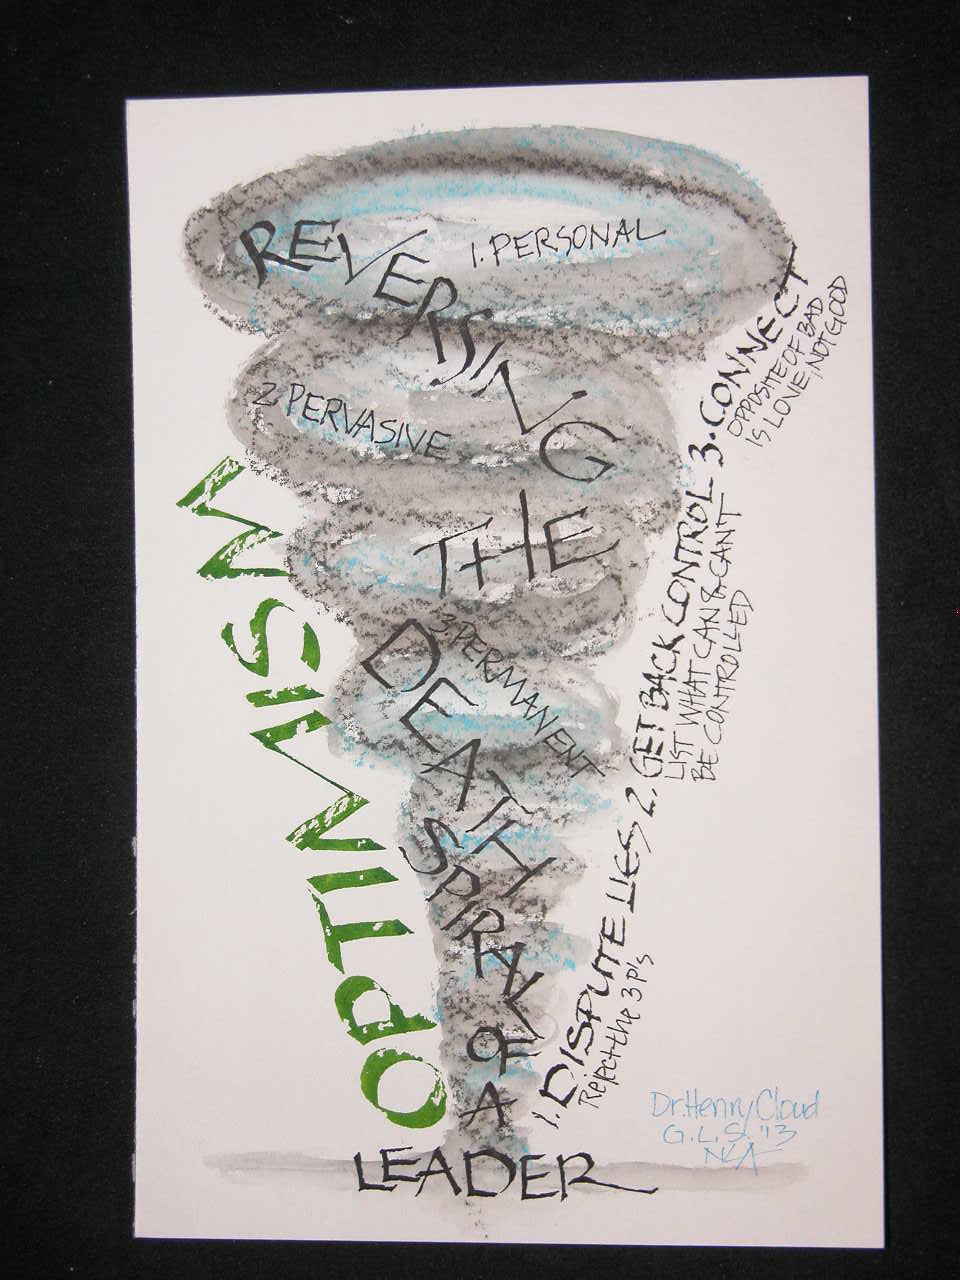 REVERSING
THE
DEATH
SPIRAL
OF
A
LEADER
1. PERSONAL
2. PERVASIVE
3. PERMANENT
OPTIMISM
1. DISPUTE LIES
Reject the 3 P's
2. GET BACK CONTROL
LIST WHAT CAN & CAN'T
BE CONTROLLED
3. CONNECT
OPPOSITE OF BAD
IS LOVE, NOT GOOD
Dr. Henry Cloud
G.L.S. '13